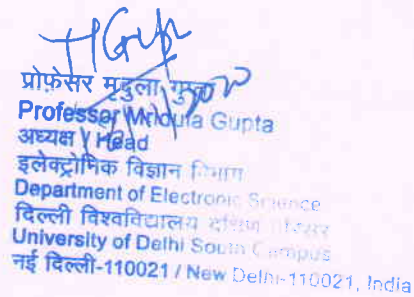 प्रोफ़ेसर मृदुला गुप्ता
Professor Mridula Gupta
अध्यक्ष / Head
इलेक्ट्रोनिक विज्ञान विभाग
Department of Electronic Science
दिल्ली विश्वविद्यालय दक्षिण परिसर
University of Delhi South Campus
नई दिल्ली-110021 / New Delhi-110021, India